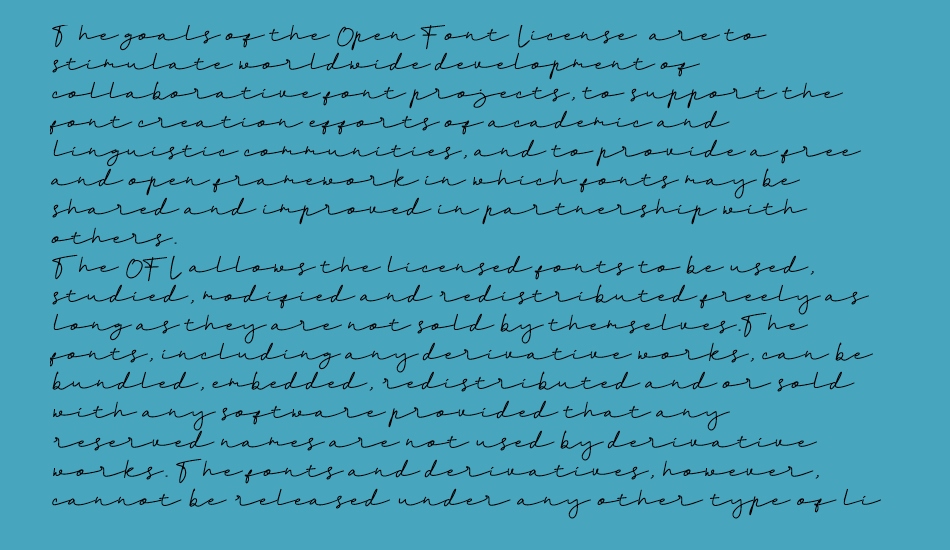 The goals of the Open Font License are to
stimulate worldwide development of
collaborative font projects, to support the
font creation efforts of academic and
linguistic communities, and to provide a free
and open framework in which fonts may be
shared and improved in partnership with
others.
The OFL allows the licensed fonts to be used,
studied, modified and redistributed freely as
long as they are not sold by themselves. The
fonts, including any derivative works, can be
bundled, embedded, redistributed and or sold
with any software provided that any
reserved names are not used by derivative
works. The fonts and derivatives, however,
cannot be released under any other type of li